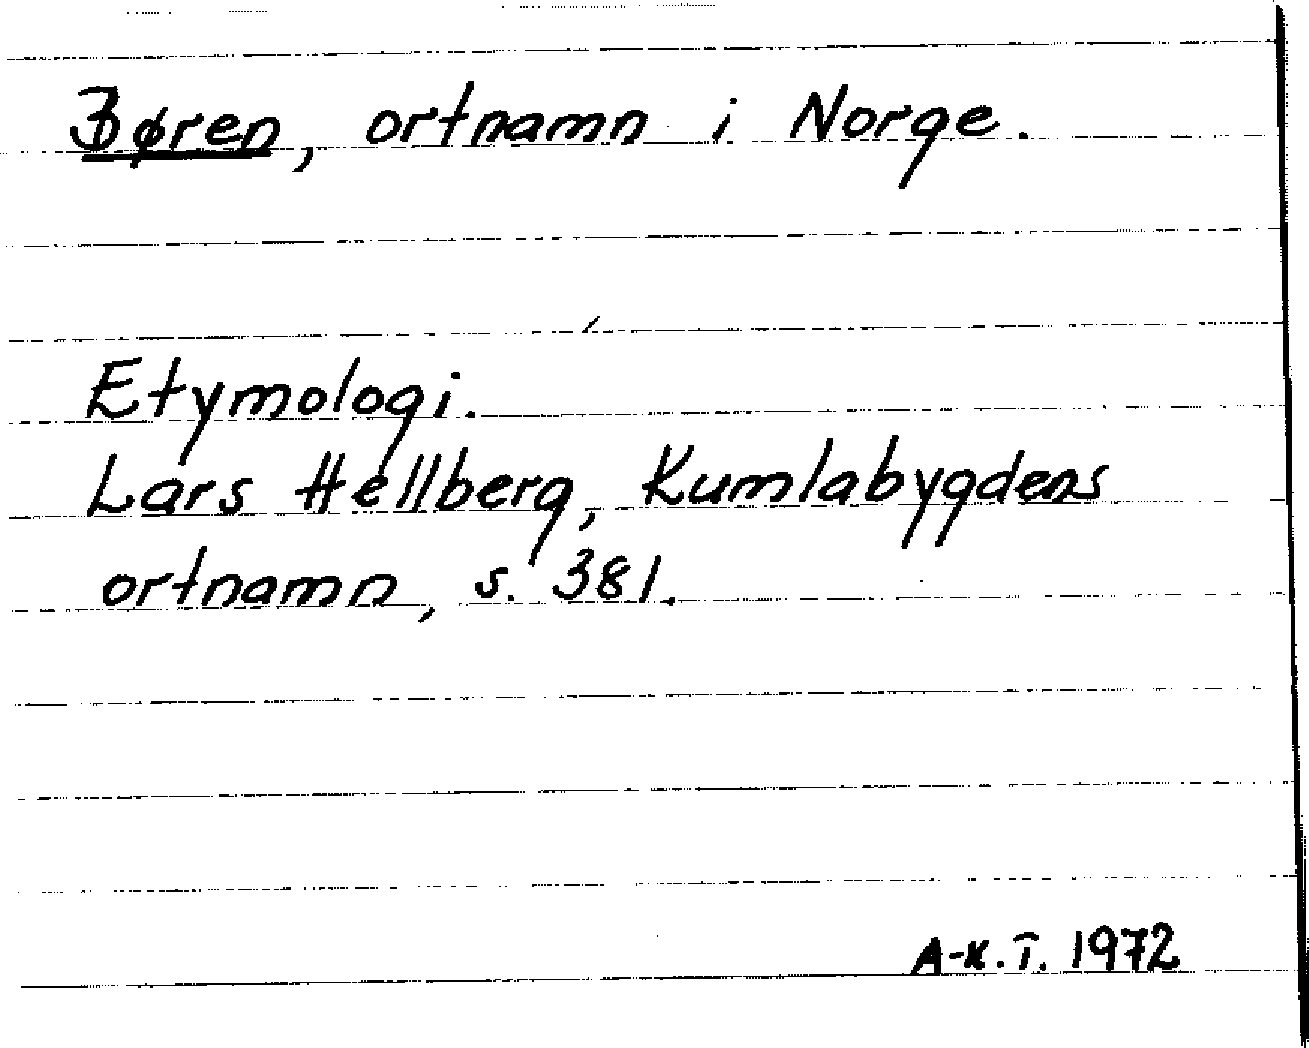 Børen, ortnamn i Norge.
Etymologi.
Lars Hellberg, Kumlabygdens
ortnamn, s. 381.
A-K. T. 1972